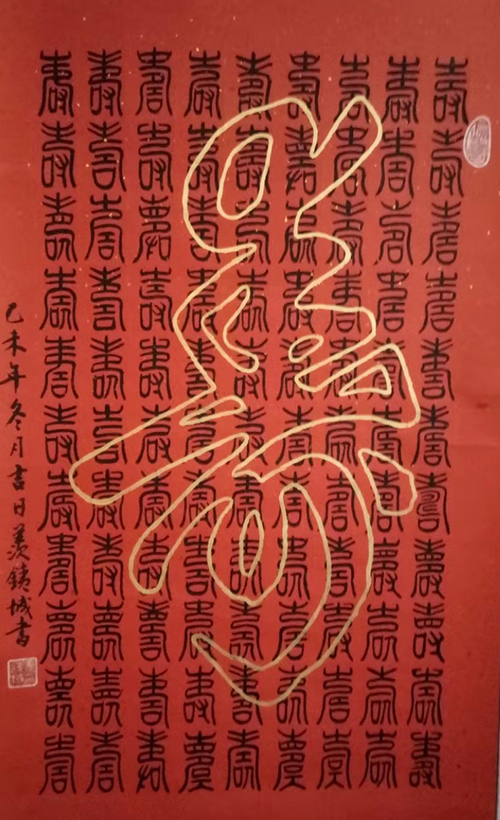 壽
壽壽壽壽壽壽壽壽壽壽壽
壽壽壽壽壽壽壽壽壽壽壽
壽壽壽壽壽壽壽壽壽壽壽
壽壽壽壽壽壽壽壽壽壽壽
壽壽壽壽壽壽壽壽壽壽壽
壽壽壽壽壽壽壽壽壽壽壽
壽壽壽壽壽壽壽壽壽壽壽
壽壽壽壽壽壽壽壽壽壽壽
壽壽壽壽壽壽壽壽壽壽壽
乙未年冬月吉日城書